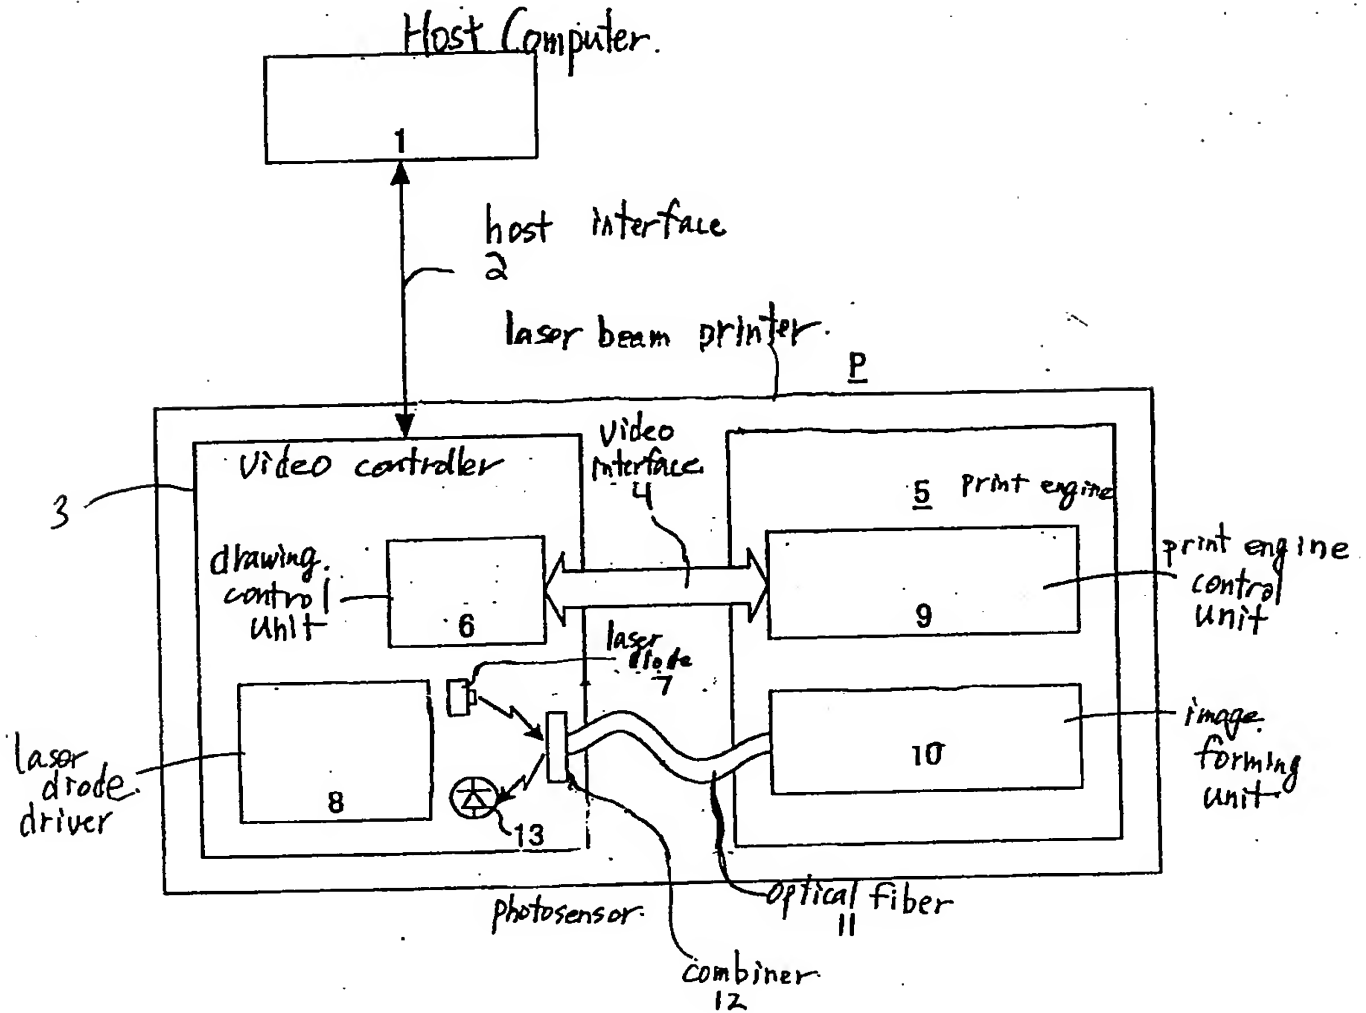 Host Computer.
1
host interface
2
laser beam printer.
P
Video controller
3
Video
interface
4
5 print engine
drawing.
control
unit
6
9
print engine
control
unit
laser
diode
7
laser
diode.
driver
8
10
image
forming
unit
13
photosensor.
optical fiber
11
combiner.
12